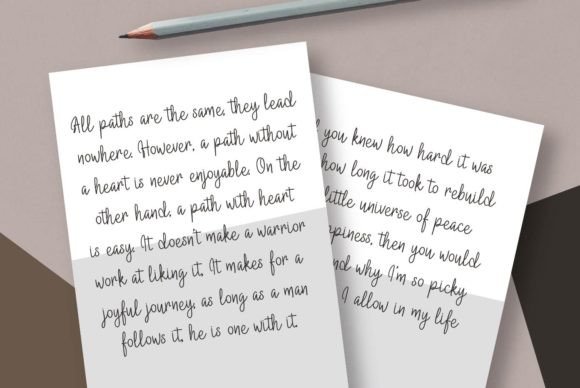 All paths are the same, they lead
nowhere. However, a path without
a heart is never enjoyable. On the
other hand, a path with heart
is easy. It doesn't make a warrior
work at liking it. It makes for a
joyful journey, as long as a man
follows it, he is one with it.
you knew how hard it was
how long it took to rebuild
little universe of peace
then you would
why I'm so picky
I allow in my life